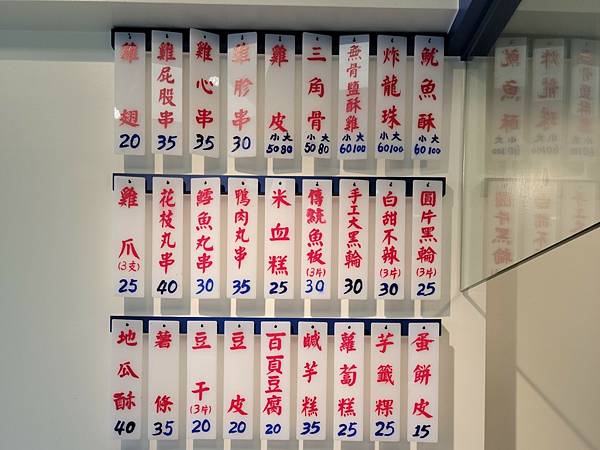 魷魚酥 小大 60 100
炸龍珠 小大 60 100
無骨鹽酥雞 小大 60 100
三角骨 小大 50 80
雞皮 小大 50 80
雞胗串 30
雞心串 35
雞屁股串 35
雞翅 20
圓片黑輪 (3片) 25
白甜不辣 (3片) 30
手工大黑輪 30
傳統魚板 (3片) 30
米血糕 25
鴨肉丸串 35
鱈魚丸串 30
花枝丸串 40
雞爪 (3支) 25
蛋餅皮 15
芋籤粿 25
蘿蔔糕 25
鹹芋糕 35
百頁豆腐 20
豆皮 20
豆干 (3片) 20
薯條 35
地瓜酥 40